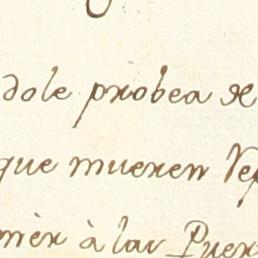 dole probea se
que mueren Ve
mèr à las Puer